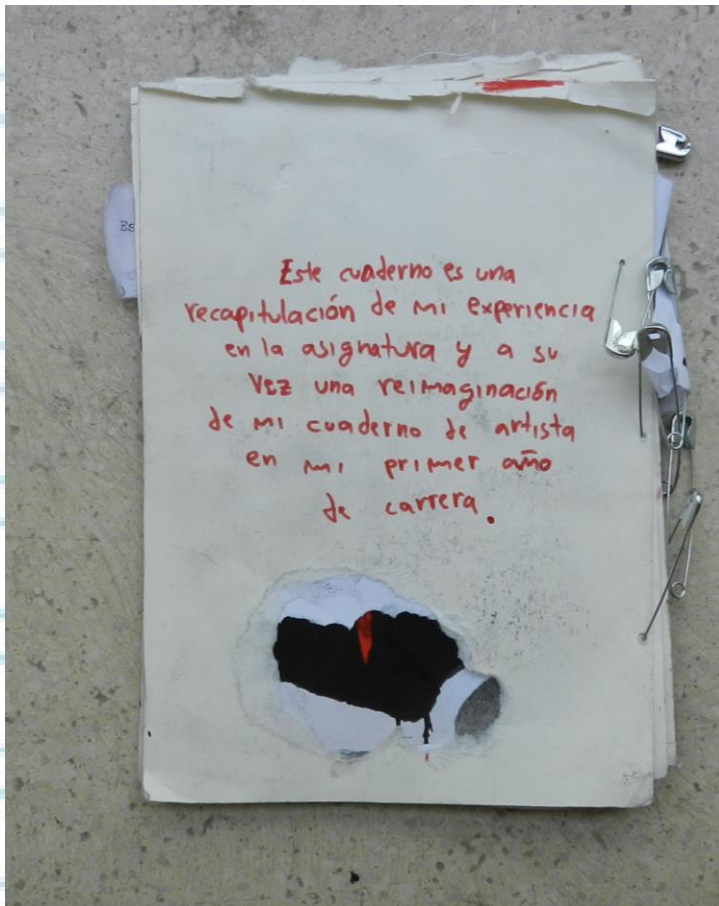 Es
Este cuaderno es una
recapitulación de mi experiencia
en la asignatura y a su
vez una reimaginación
de mi cuaderno de artista
en mi primer año
de carrera.